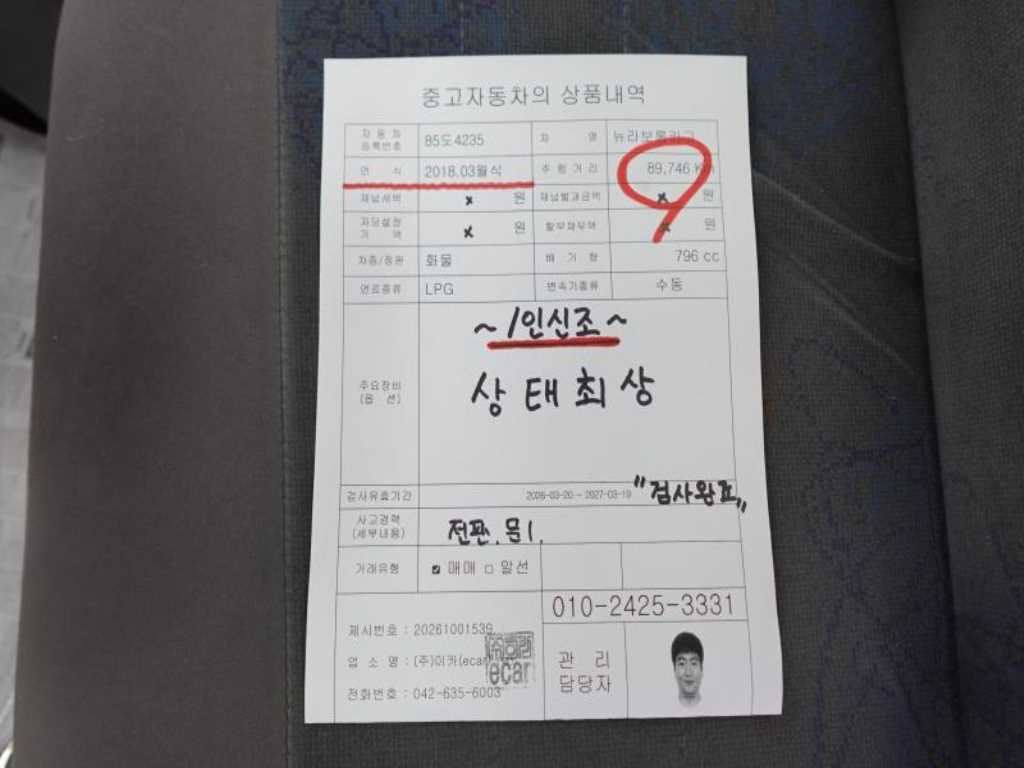 중고자동차의 상품내역
자동차등록번호 85도4235 차 명 뉴라보롱카고
연 식 2018.03월식 주행거리 89,746 Km
체납세액 x 원 체납벌과금액 x 원
저당설정기 역 x 원 할부채무액 x 원
차종/정원 화물 배 기 량 796 cc
연료종류 LPG 변속기종류 수동
주요장비(옵 션)
~1인신조~
상태최상
검사유효기간 2026-03-20 ~ 2027-03-19 "검사완료"
사고경력(세부내용) 전판. 문1.
거래유형 매매 알선
010-2425-3331
제시번호 : 20261001539
업 소 명 : (주)이카(ecar)
전화번호 : 042-635-6003
관 리
담당자
ecar